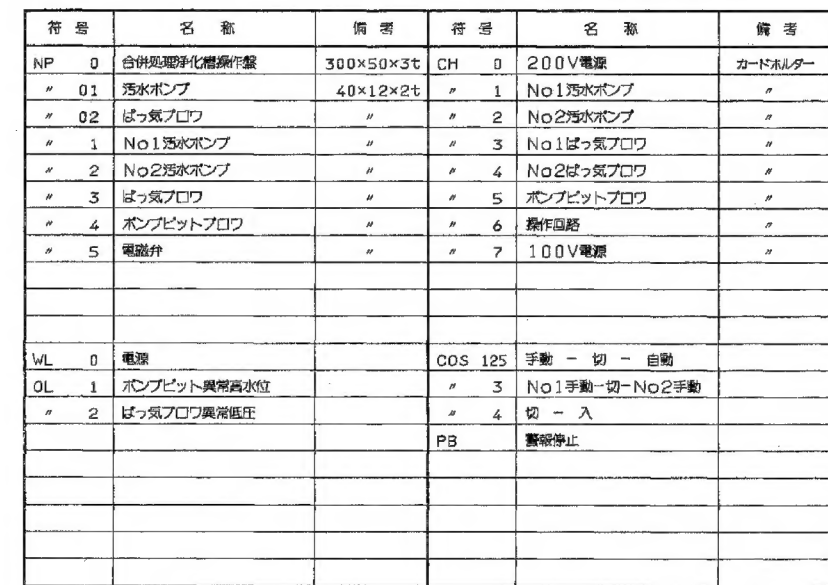 符号 名称 備考 符号 名称 備考
NP 0 合併処理浄化槽操作盤 300×50×3t CH 0 200V電源 カードホルダー
〃 01 汚水ポンプ 40×12×2t 〃 1 No1汚水ポンプ 〃
〃 02 ばっ気ブロワ 〃 〃 2 No2汚水ポンプ 〃
〃 1 No1汚水ポンプ 〃 〃 3 No1ばっ気ブロワ 〃
〃 2 No2汚水ポンプ 〃 〃 4 No2ばっ気ブロワ 〃
〃 3 ばっ気ブロワ 〃 〃 5 ポンプピットブロワ 〃
〃 4 ポンプピットブロワ 〃 〃 6 操作回路 〃
〃 5 電磁弁 〃 〃 7 100V電源 〃
WL 0 電源 COS 125 手動 － 切 － 自動
OL 1 ポンプピット異常高水位 〃 3 No1手動－切－No2手動
〃 2 ばっ気ブロワ異常低圧 〃 4 切 － 入
PB 警報停止